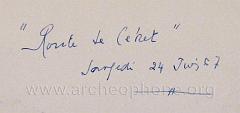 "Route de Céret"
Samedi 24 Juin 67
www.archeophone.org